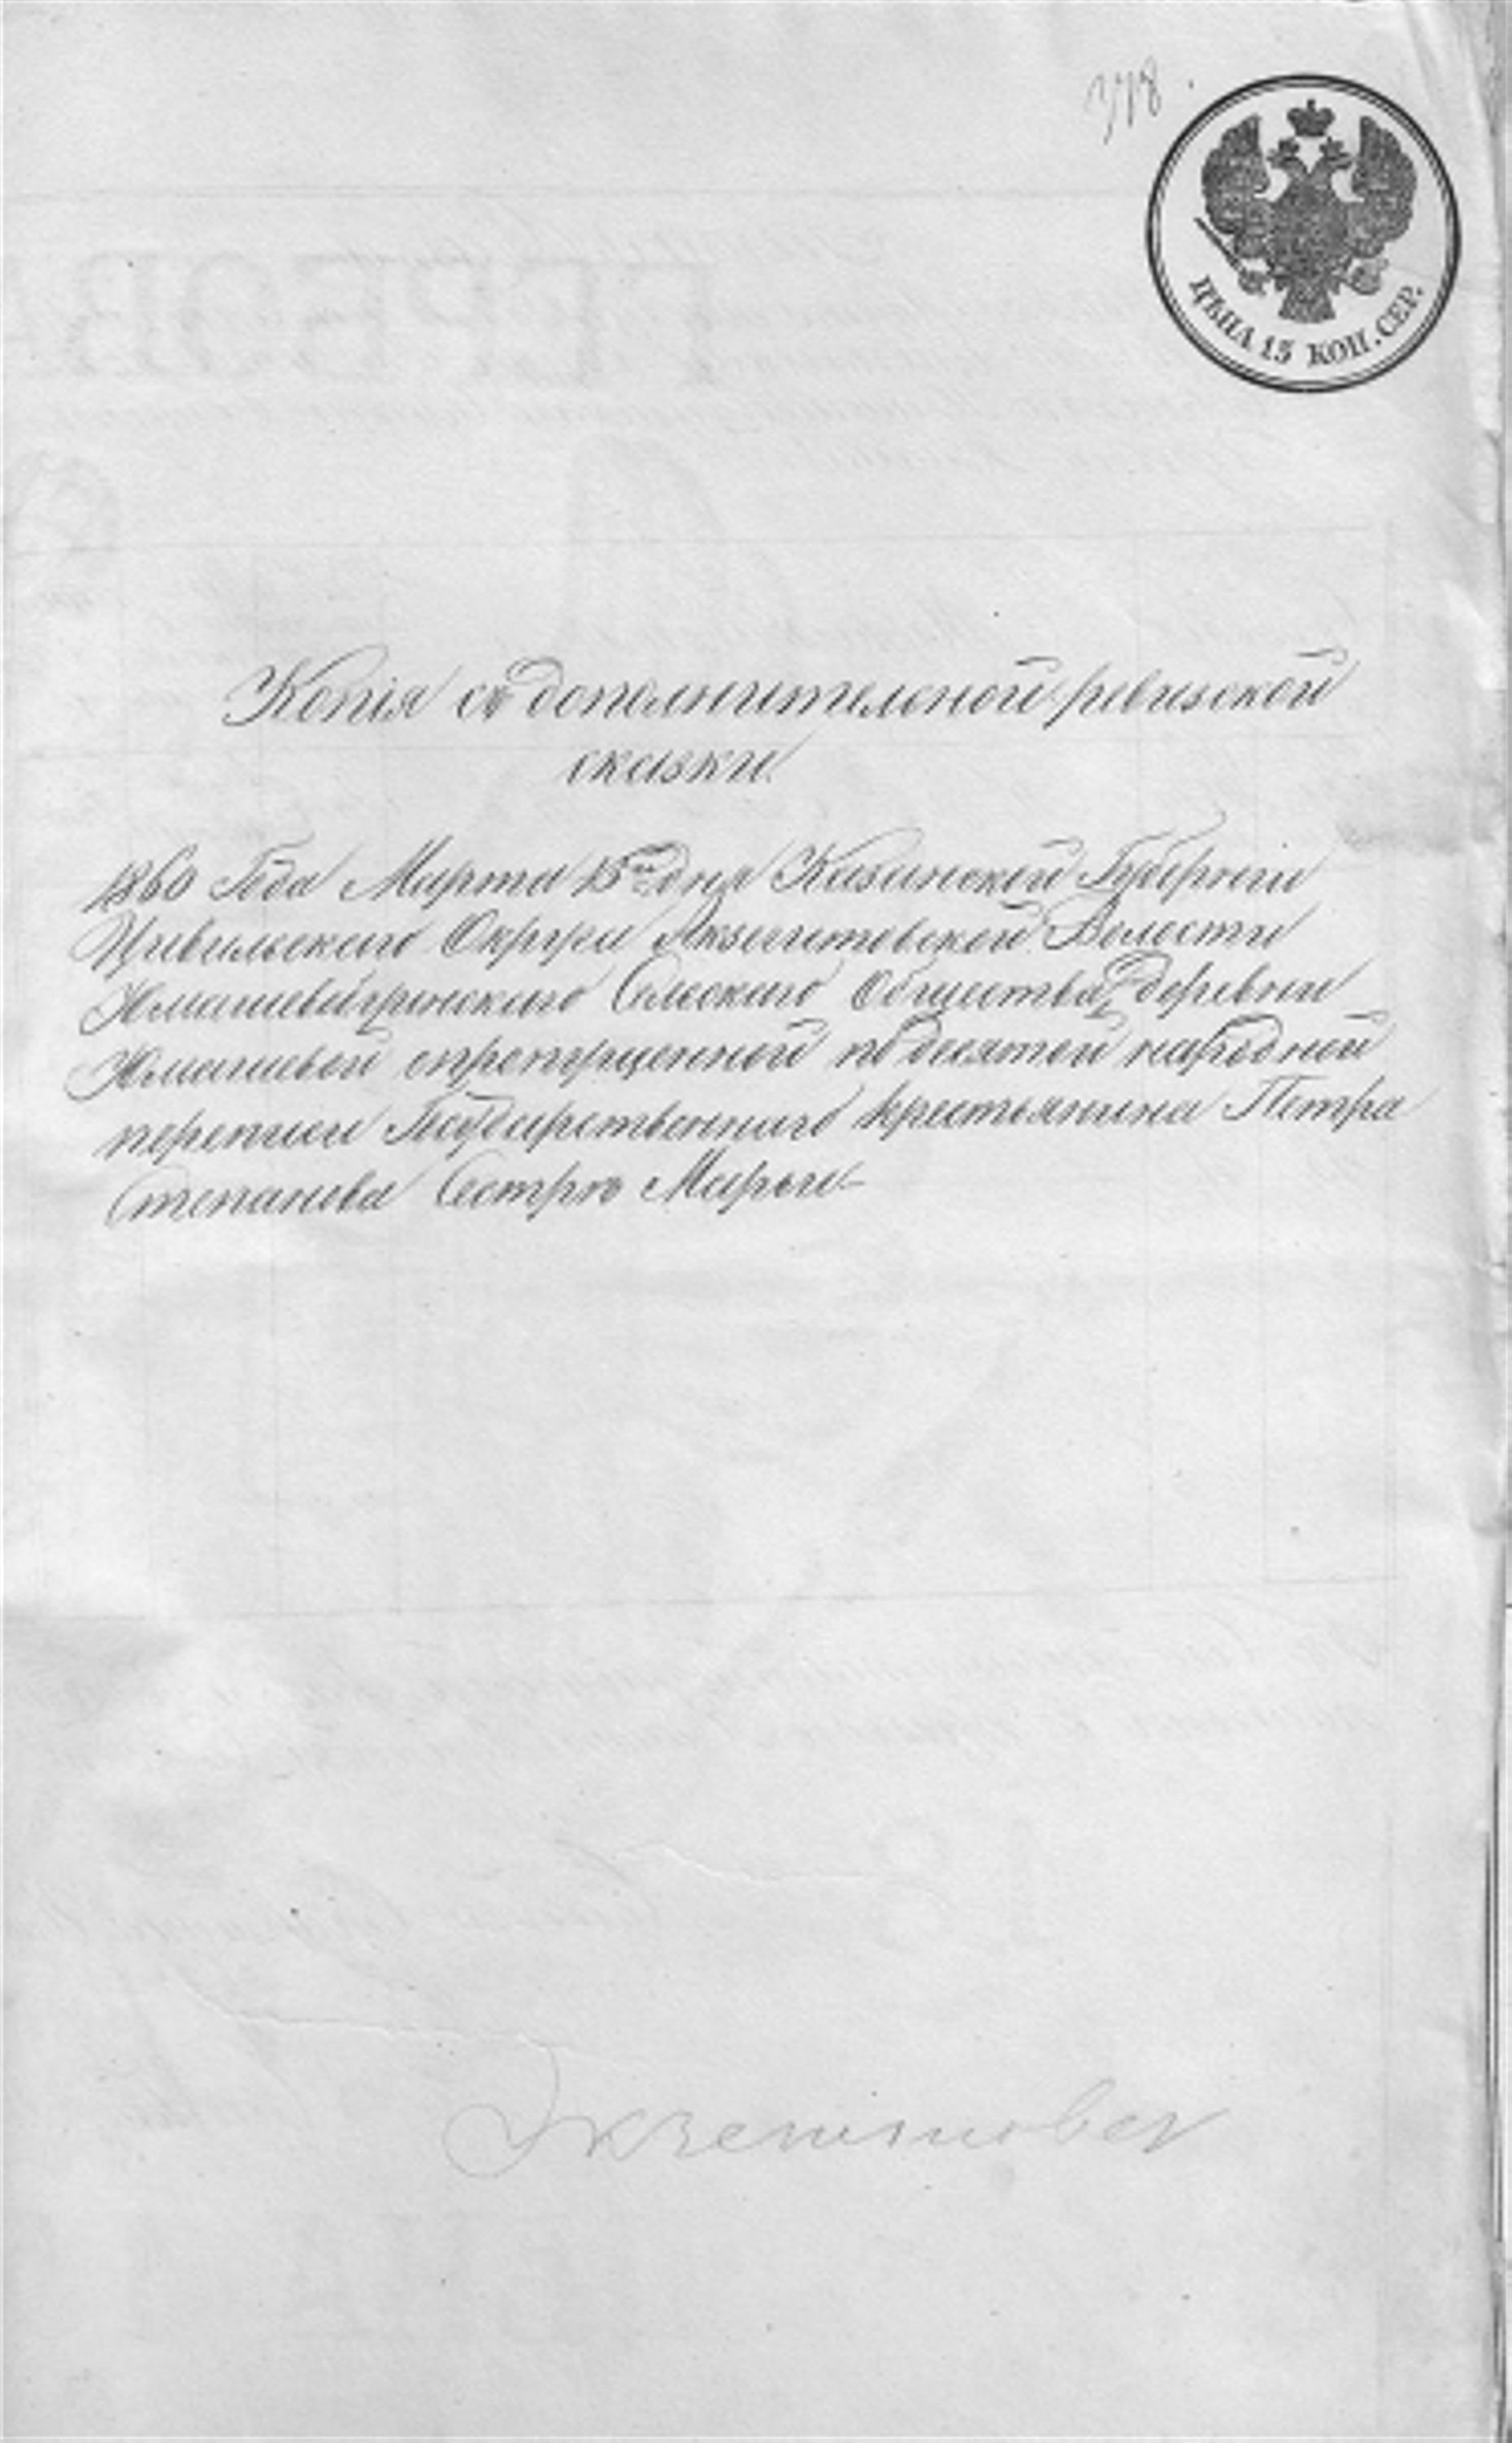 378.
ЦѢНА 15 КОП. СЕР.
Копія съ дополнительной ревизской
сказки.
1860 Года Марта 15го дня Казанской Губерніи
Цивильскаго Округа Акзегитовской Волости
Сельскаго Общества, деревни
пропущенной по десятой народной
переписи Государственнаго крестьянина Петра
Степанова Сестрѣ Марьи